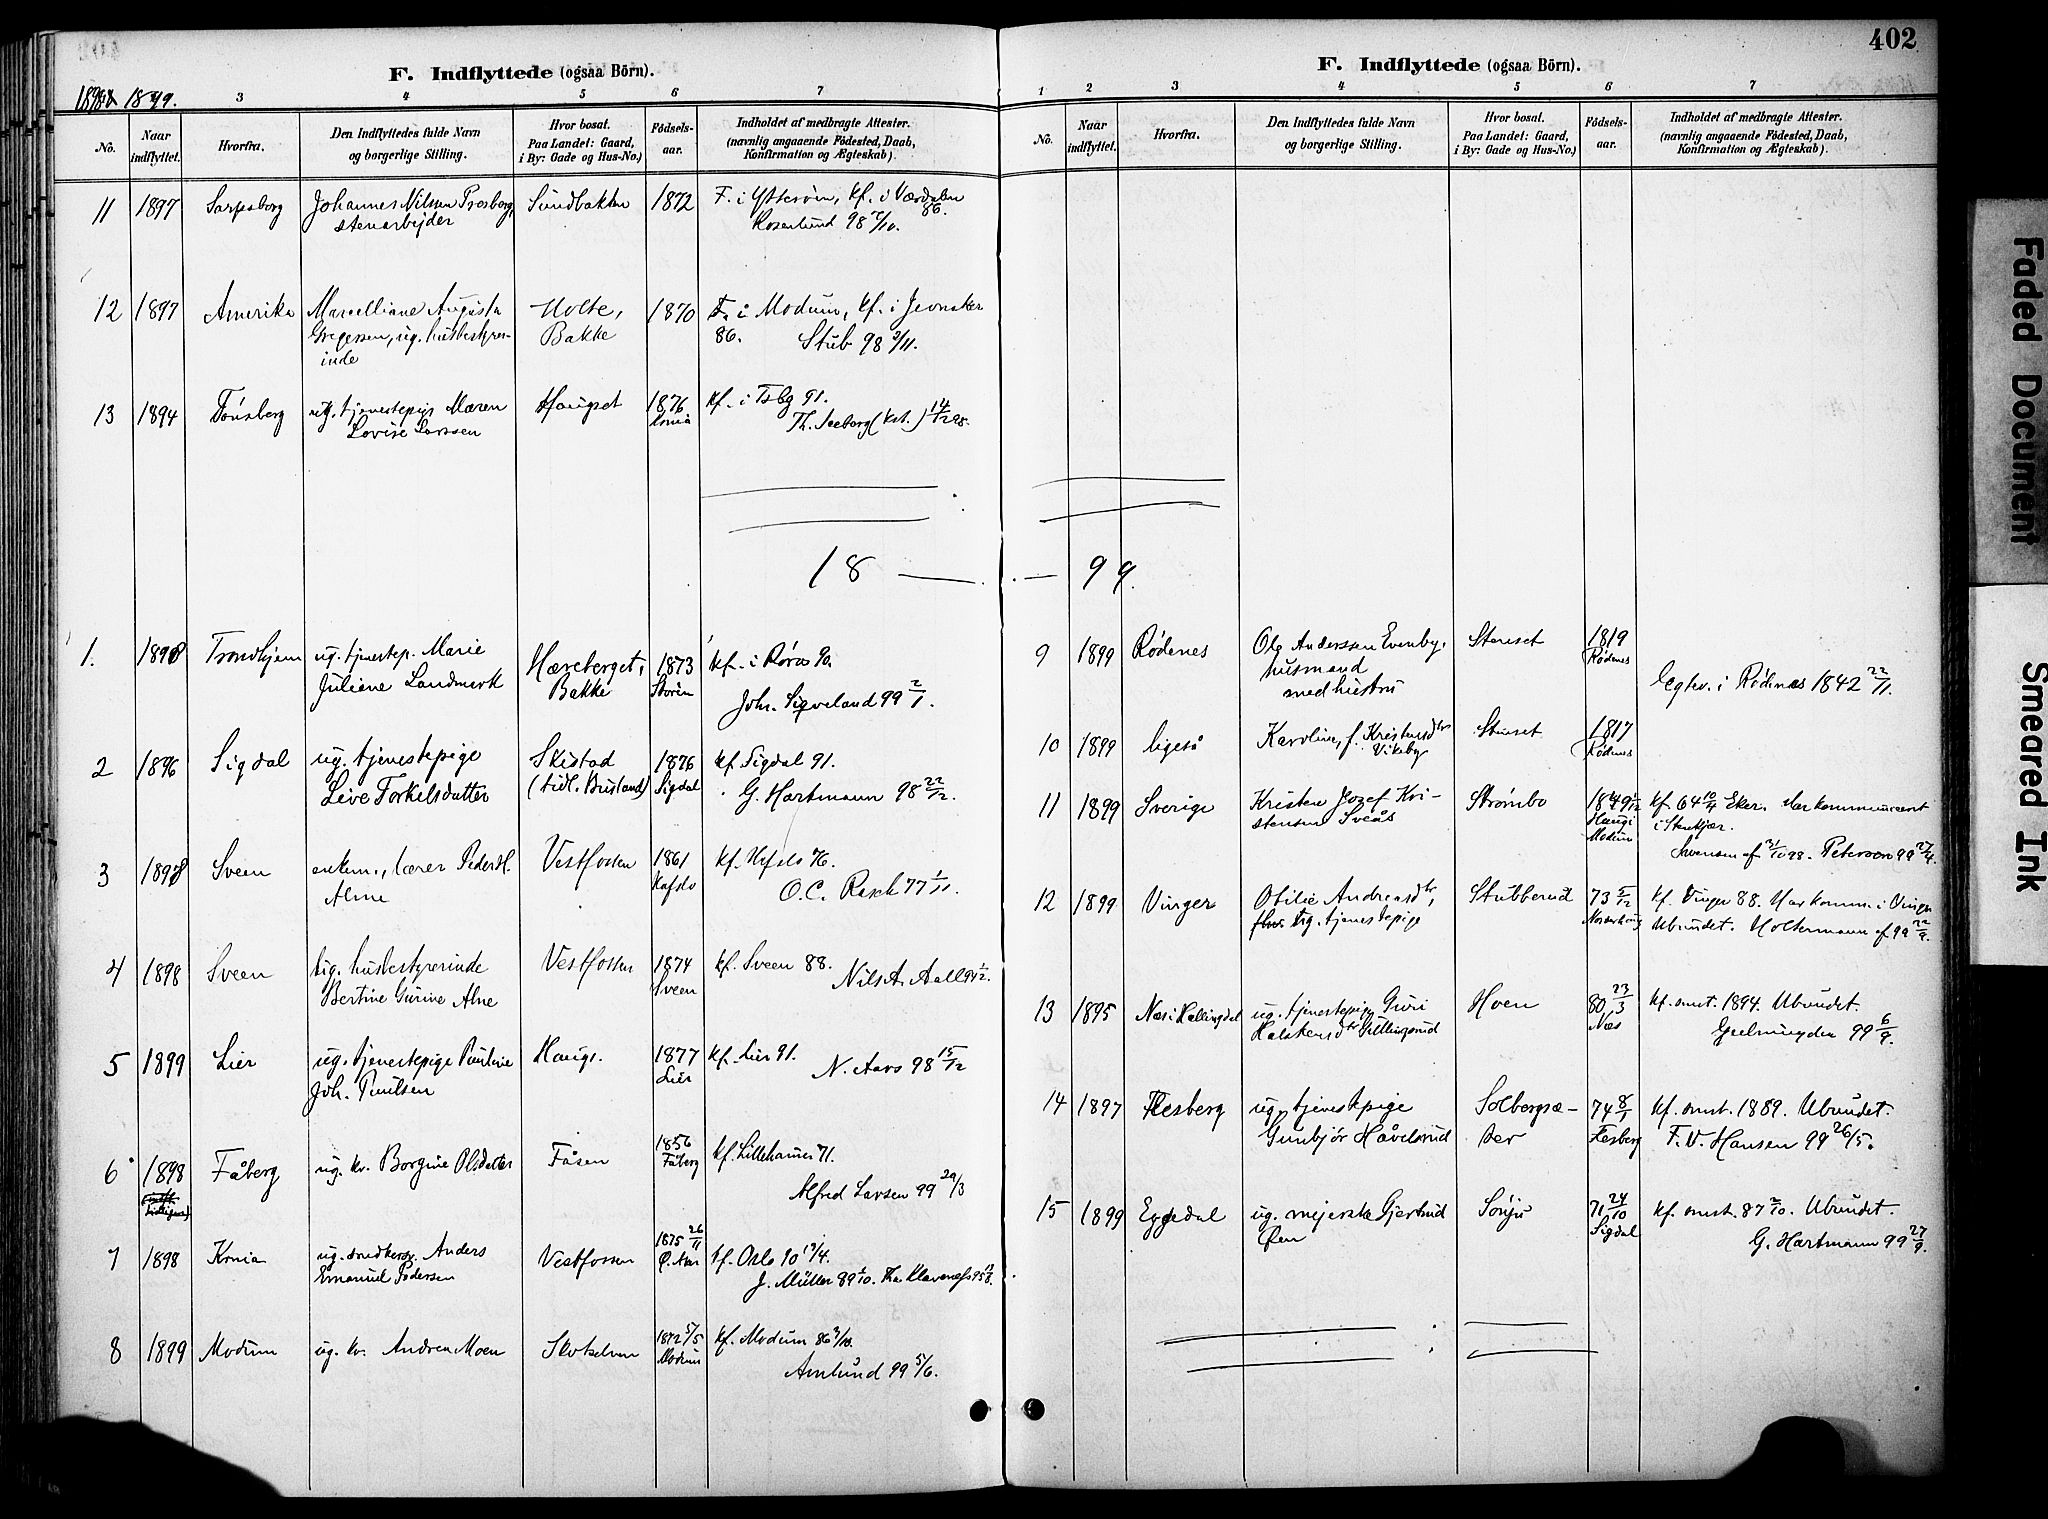 402
F. Indflyttede (ogsaa Börn).
1898 & 1899.
3 4 5 6 7
No.
Naar indflyttet.
Hvorfra.
Den Indflyttedes fulde Navn og borgerlige Stilling.
Hvor bosat. Paa Landet: Gaard, i By: Gade og Hus-No.)
Födselsaar.
Indholdet af medbragte Attester. (navnlig angaaende Födested, Daab, Konfirmation og Ægteskab).
11 1897 Sarpsborg Johannes Nilsen Sundbakken 1872 F. i Ytterøen, kf. i Værdalen 86.
stenarbejder Rosenlund 98
12 1897 Amerika Marcelliane Augusta Holte, 1870 F. i Modum, kf. i Jevnaker
Gregersen, ug. husbestyrer- Bakke 86. Stub 98 2/11.
inde
13 1894 Tönsberg ug. tjenestepige Maren Haugset 1876 kf. i Tsbg 91.
Lovise Larssen Krnia Th. Seeborg (kst.) 14/12 98.
18 — 99.
1. 1898 Trondhjem ug. tjenestep. Marie Hæreberget, 1873 kf. i Røros 90.
Juliane Landmerk Bakke Stören Joh. Sigveland 99 2/1.
2 1896 Sigdal ug. tjenestepige Skistad 1876 kf Sigdal 91.
Live Torkelsdatter (tidl. Brusland) Sigdal G. Hartmann 98 22/12.
3 1898 Sveen enkem., lærer Peder Vestfossen 1861 kf. Hafslo 76.
Alme Hafslo O.C. Rasch 77 1/11.
4 1898 Sveen ug. husbestyrerinde Vestfossen 1874 kf. Sveen 88.
Bertine Gurine Alme Sveen Nils A. Aall 94 1/2.
5 1899 Lier ug. tjenestepige Pauline Haugs. 1877 kf. Lier 91.
Joh. Paulsen Lier N. Aars 98 15/12
6 1898 Fåberg ug. kv. Borgine Olsdatter Fåsen 1856 kf. Lillehamer 71.
Fåberg Alfred Larsen 99 29/3
7 1898 Krnia ug. snedkersv. Anders Vestfossen 1875 26/11 kf. Oslo 90 13/4.
Emanuel Pedersen J. Müller 89 1/10. Klavenefs 95
8 1899 Modum ug. kv. Andrea Moen Skotselven 1872 5/5 kf. Modum 86 3/10.
Modum Amlund 99 5/6.
F. Indflyttede (ogsaa Börn).
1 2 3 4 5 6 7
No.
Naar indflyttet.
Hvorfra.
Den Indflyttedes fulde Navn og borgerlige Stilling.
Hvor bosat. Paa Landet: Gaard, i By: Gade og Hus-No.)
Födselsaar.
Indholdet af medbragte Attester. (navnlig angaaende Födested, Daab, Konfirmation og Ægteskab).
9 1899 Rødenes Ole Anderssen Evenby, Stenset 1819
husmand Rødenes
med hustru Egtev. i Rødenes 1842 22/11.
10 1899 ligeså Karoline, f. Kristensdtr Stenset 1817
Vikeby Rødenes
11 1899 Sverige Kristen Jozef Kri- Strömbo 1849 kf. 64 10/4 Eker. Har kommuniceret
stensen Sveås Haug i Modum i Stenkjær.
Svensen af 21/10 98. Peterson 99 27/4.
12 1899 Vinger Otilie Andreasdtr, Stubberud 73 5/12 kf. Vinger 88. Har komm. i Vinger
ug. tjenestepige Ubundet. Holtermann af 99 22/9.
13 1895 Nes i Hallingdal ug. tjenestepige Guri Hoen 80 23/3 kf. smst. 1894. Ubundet.
Næs Geelmuyden 99 6/9.
14 1897 Flesberg ug. tjenestepige Solbergsæ- 74 8/1 kf. smst. 1889. Ubundet.
Gunbjör Håvelsrud ter Flesberg F.V. Hansen 99 26/5.
15 1899 Eggedal ug. mejerske Gjertrud Sönju 71 24/10 kf. smst. 87 2/10. Ubundet.
Øen Sigdal G. Hartmann 99 27/9.
Faded Document
Smeared Ink